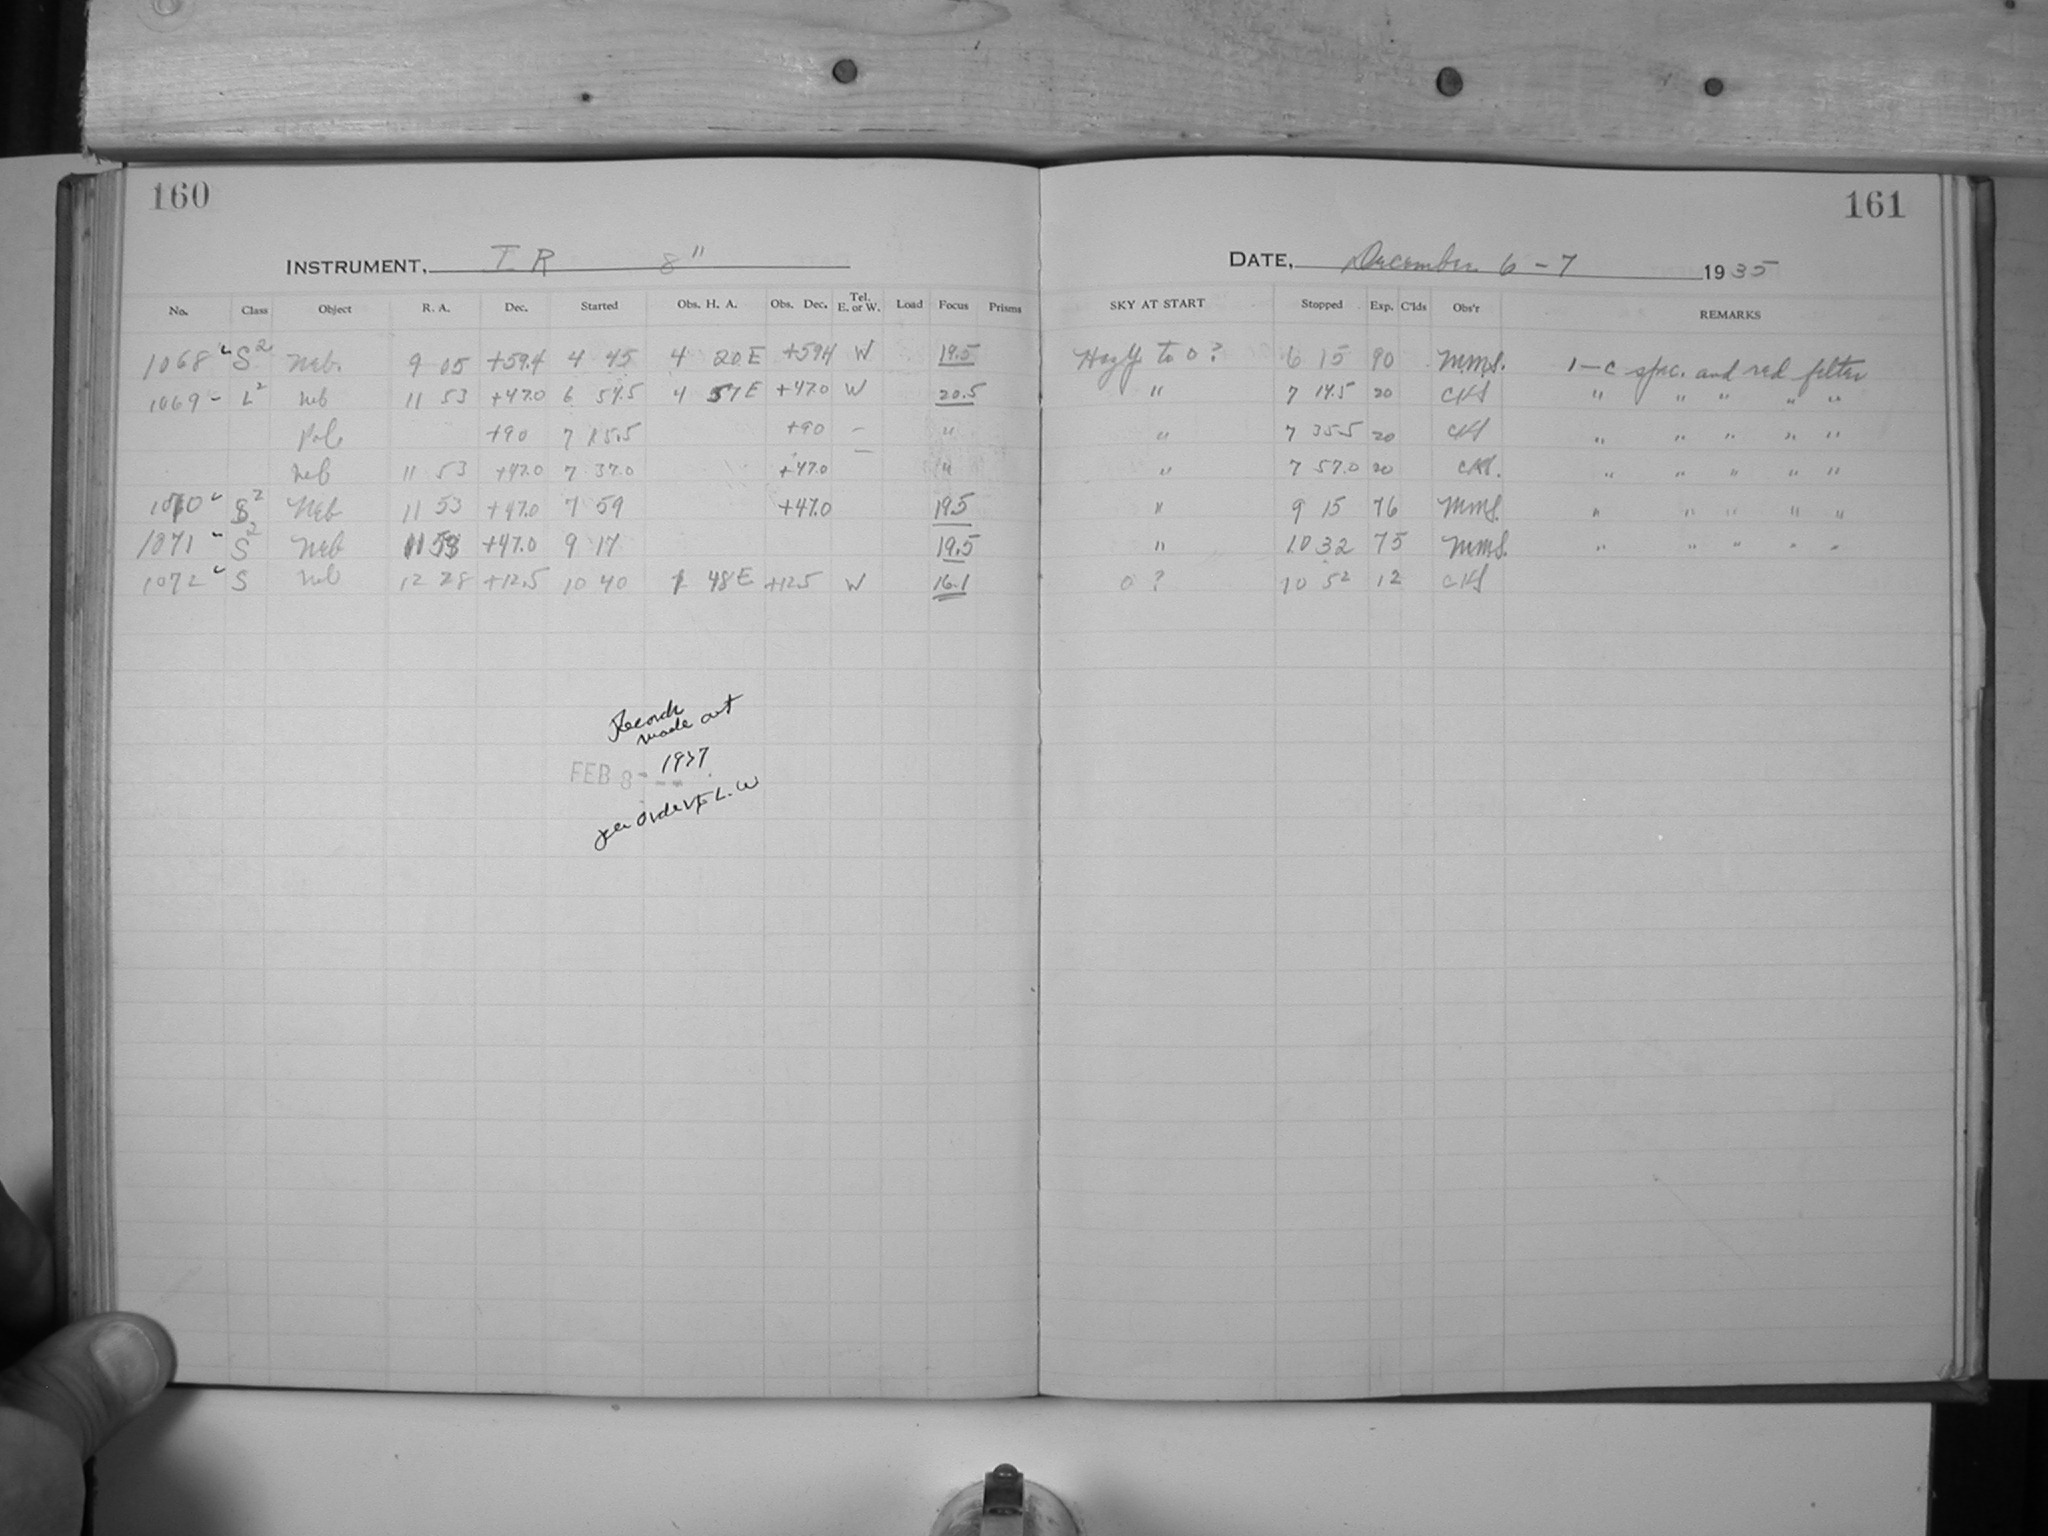 160
161
INSTRUMENT, I R 8"
DATE, December 6-7 1935
No. Class Object R. A. Dec. Started Obs. H. A. Obs. Dec. Tel. E. or W. Load Focus Prisms SKY AT START Stopped Exp. C'lds Obs'r REMARKS
1068 S² Neb. 9 05 +59.4 4 45 4 20E +594 W 19.5 Hazy to 0? 6 15 90 MMS. 1-C spec. and red filter
1069 - L² neb 11 53 +47.0 6 54.5 4 57E +47.0 W 20.5 " 7 14.5 20 CKS " " " " "
Pole +90 7 15.5 +90 - " " 7 355 20 CKS " " " " "
neb 11 53 +47.0 7 37.0 +47.0 " " 7 57.0 20 CKS. " " " " "
1070 S² Neb 11 53 +47.0 7 59 +47.0 19.5 " 9 15 76 MMS. " " " " "
1071 S² Neb 11 53 +47.0 9 17 19.5 " 10 32 75 MMS. " " " " "
1072 S neb 12 28 +12.5 10 40 1 48E +12.5 W 16.1 0? 10 52 12 CKS
Records
made out
FEB 8 - 1937
per order of L. W